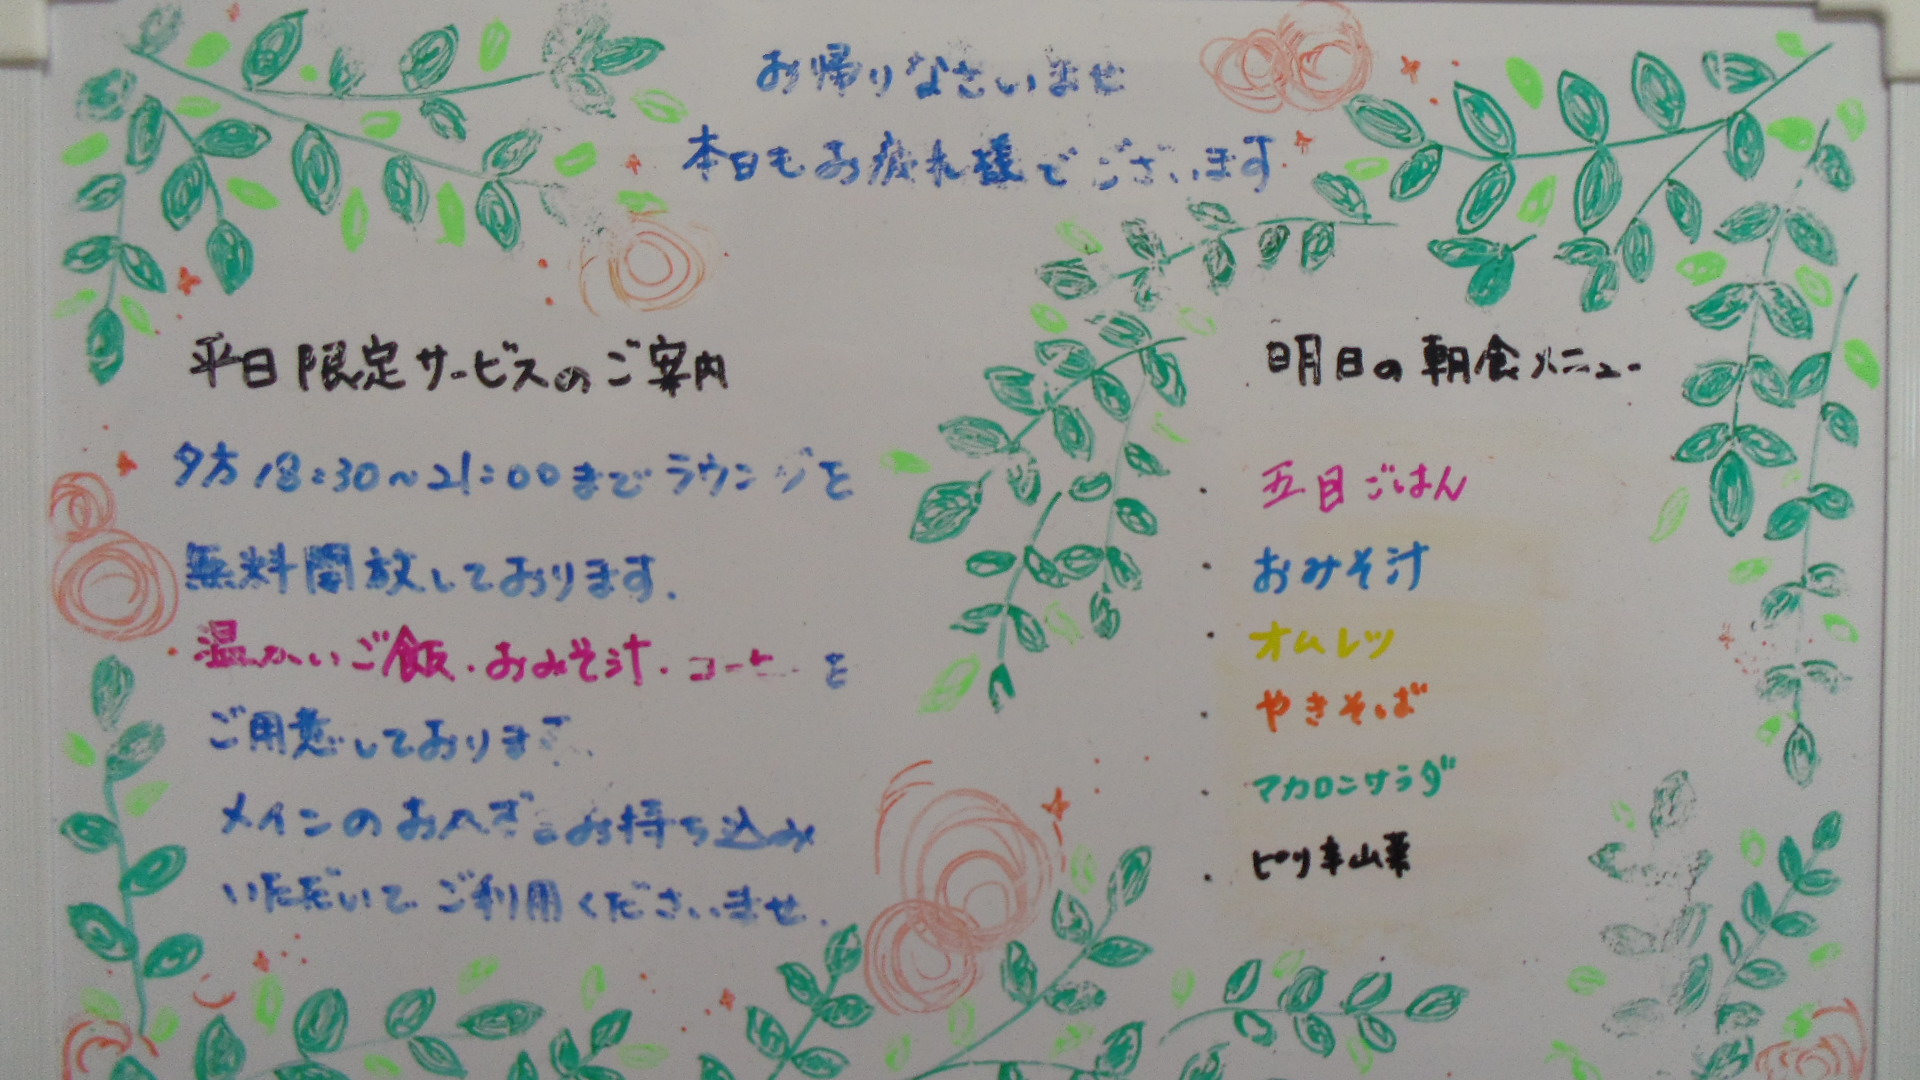 お帰りなさいませ
本日もお疲れ様でございます
平日限定サービスのご案内
夕方18:30~21:00までラウンジを
無料開放しております.
温かいご飯・おみそ汁・コーヒーを
ご用意しております.
メインのおかずをお持ち込み
いただいてご利用くださいませ.
明日の朝食メニュー
・五目ごはん
・おみそ汁
・オムレツ
・やきそば
・マカロニサラダ
・ピリ辛山菜